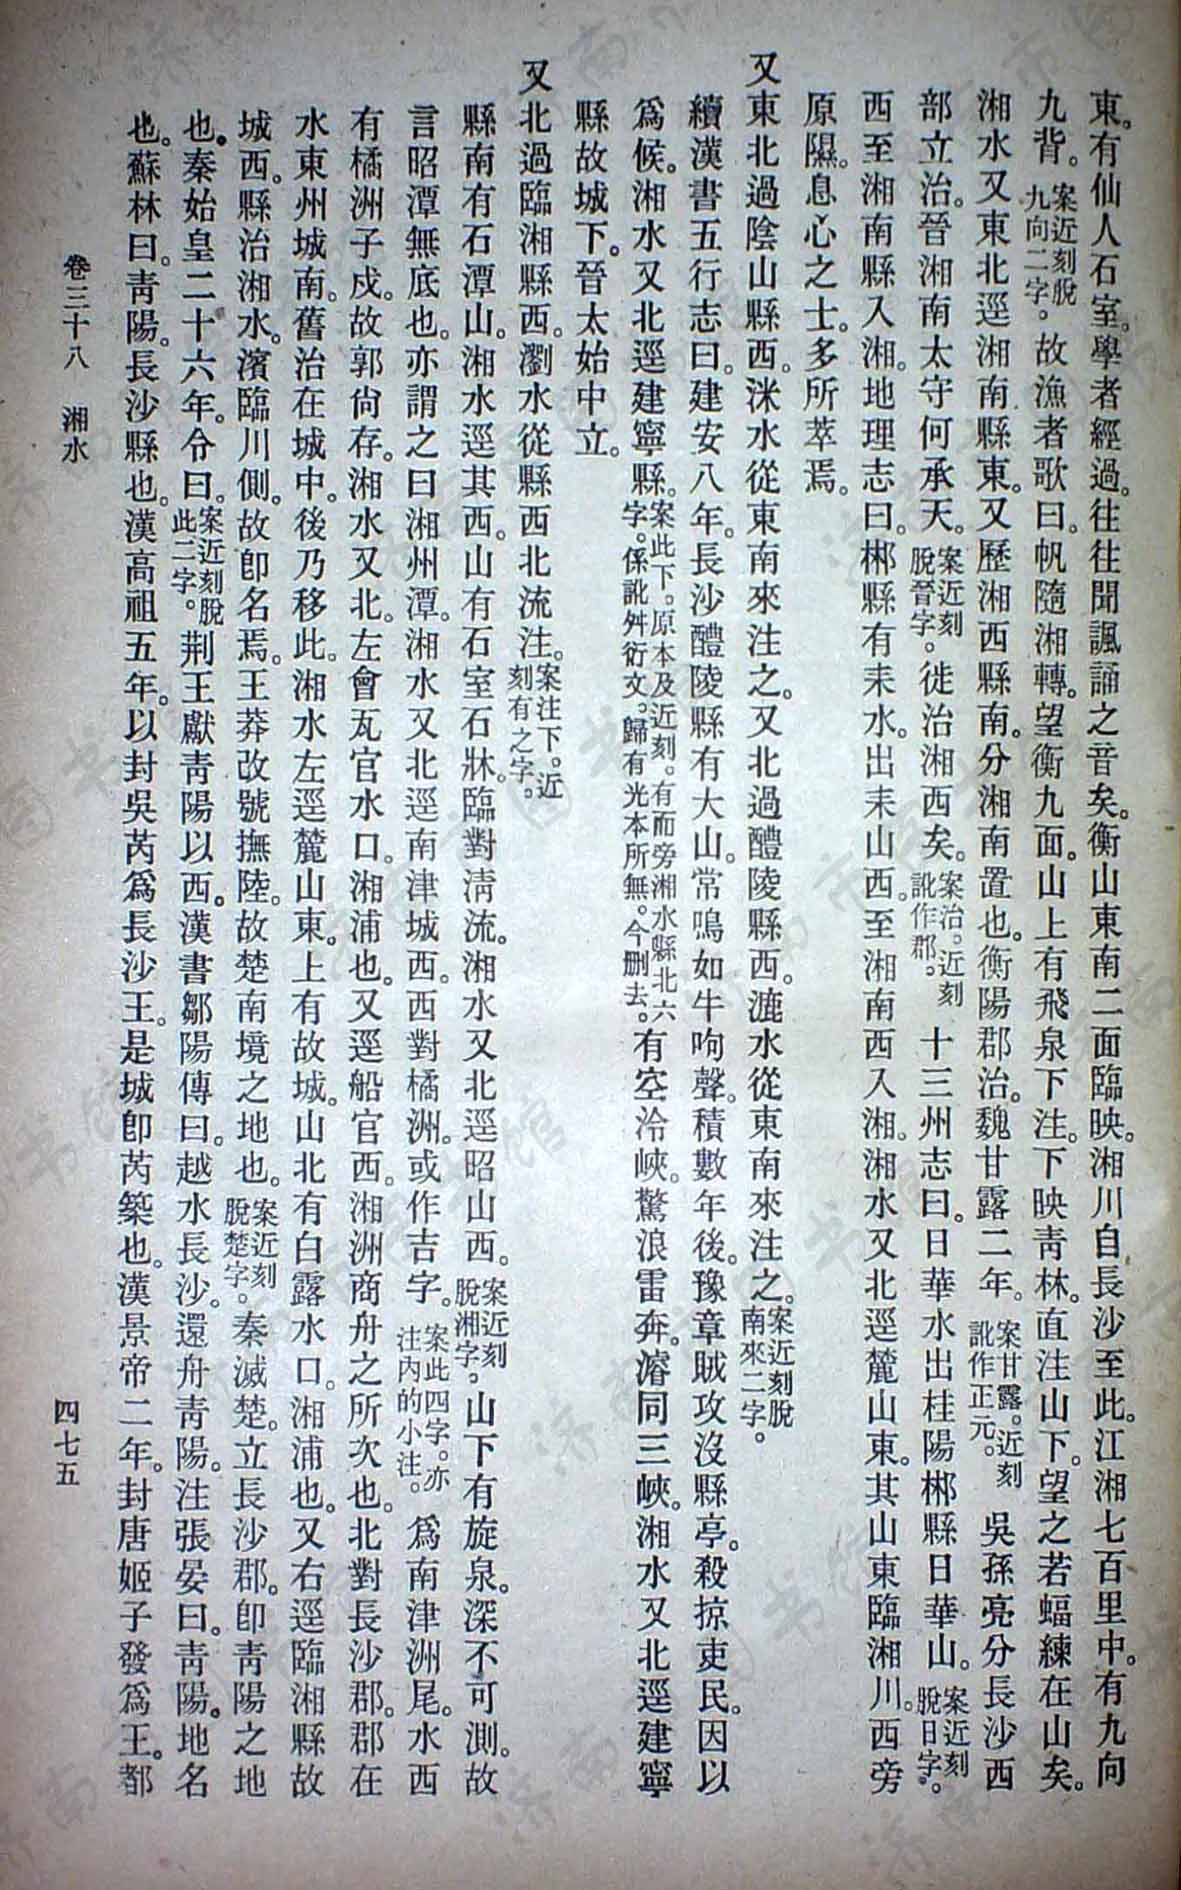 東。有仙人石室。學者經過。往往聞諷誦之音矣。衡山東南二面臨映。湘川自長沙至此。江湘七百里中。有九向
九背。案近刻脫九向二字。故漁者歌曰。帆隨湘轉。望衡九面。山上有飛泉下注。下映靑林。直注山下。望之若幅練在山矣。
湘水又東北逕湘南縣東。又歷湘西縣南。分湘南置也。衡陽郡治。魏甘露二年。案甘露。近刻訛作正元。吳孫亮分長沙西
部立治。晉湘南太守何承天。案近刻脫晉字。徙治湘西矣。案治。近刻訛作郡。十三州志曰。日華水出桂陽郴縣日華山。案近刻脫日字。
西至湘南縣入湘。地理志曰。郴縣有耒水。出耒山西。至湘南西入湘。湘水又北逕麓山東。其山東臨湘川。西旁
原隰。息心之士。多所萃焉。
又東北過陰山縣西。洣水從東南來注之。又北過醴陵縣西。漉水從東南來注之。案近刻脫南來二字。
續漢書五行志曰。建安八年。長沙醴陵縣有大山。常鳴如牛呴聲。積數年後。豫章賊攻沒縣亭。殺掠吏民。因以
爲候。湘水又北逕建寧縣。案此下。原本及近刻。有而旁湘水縣北六字。係訛舛衍文。歸有光本所無。今刪去。有空泠峽。驚浪雷奔。濬同三峽。湘水又北逕建寧
縣故城下。晉太始中立。
又北過臨湘縣西。瀏水從縣西北流注。案注下。近刻有之字。
縣南有石潭山。湘水逕其西。山有石室石牀。臨對淸流。湘水又北逕昭山西。案近刻脫湘字。山下有旋泉。深不可測。故
言昭潭無底也。亦謂之曰湘州潭。湘水又北逕南津城西。西對橘洲。或作吉字。案此四字。亦注內的小注。爲南津洲尾。水西
有橘洲子戍。故郭尙存。湘水又北。左會瓦官水口。湘浦也。又逕船官西。湘洲商舟之所次也。北對長沙郡。郡在
水東州城南。舊治在城中。後乃移此。湘水左逕麓山東。上有故城。山北有白露水口。湘浦也。又右逕臨湘縣故
城西。縣治湘水。濱臨川側。故卽名焉。王莽改號撫陸。故楚南境之地也。案近刻脫楚字。秦滅楚。立長沙郡。卽靑陽之地
也。秦始皇二十六年。令曰。案近刻脫此二字。荆王獻靑陽以西。漢書鄒陽傳曰。越水長沙。還舟靑陽。注張晏曰。靑陽。地名
也。蘇林曰。靑陽。長沙縣也。漢高祖五年。以封吳芮爲長沙王。是城卽芮築也。漢景帝二年。封唐姬子發爲王。都
卷三十八　湘水
四七五